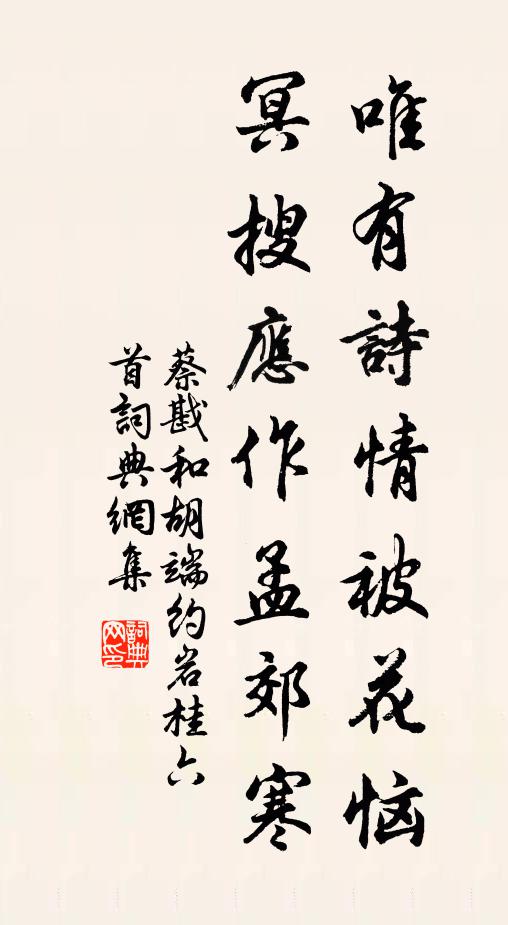 唯有詩情被花恼
冥搜應作孟郊寒
蔡戡和胡端约岩桂六
首詞典網集
詞典
网印